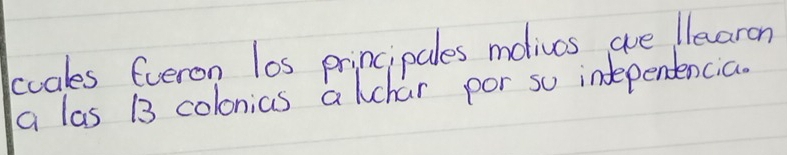 cuales fueron los principales motivos que llevaron
a las 13 colonias a luchar por su independencia.